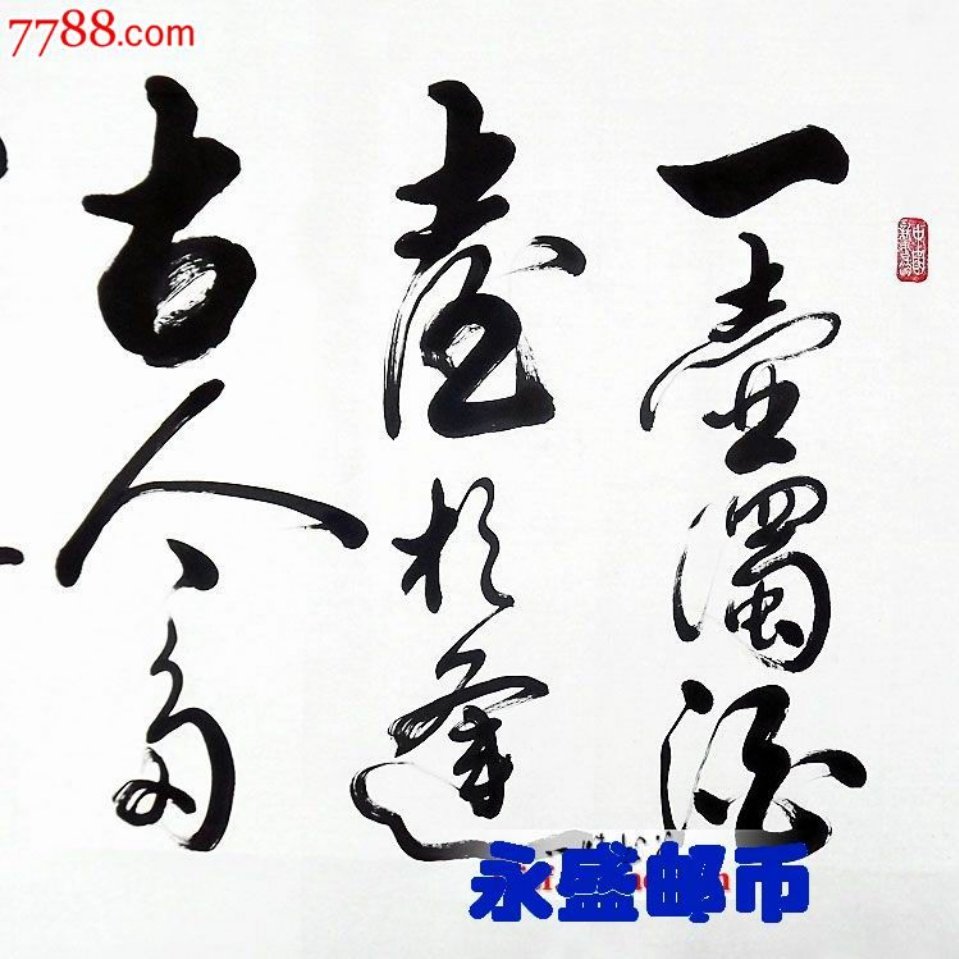 7788.com
一壺濁酒
喜相逢
古今多
永盛邮币